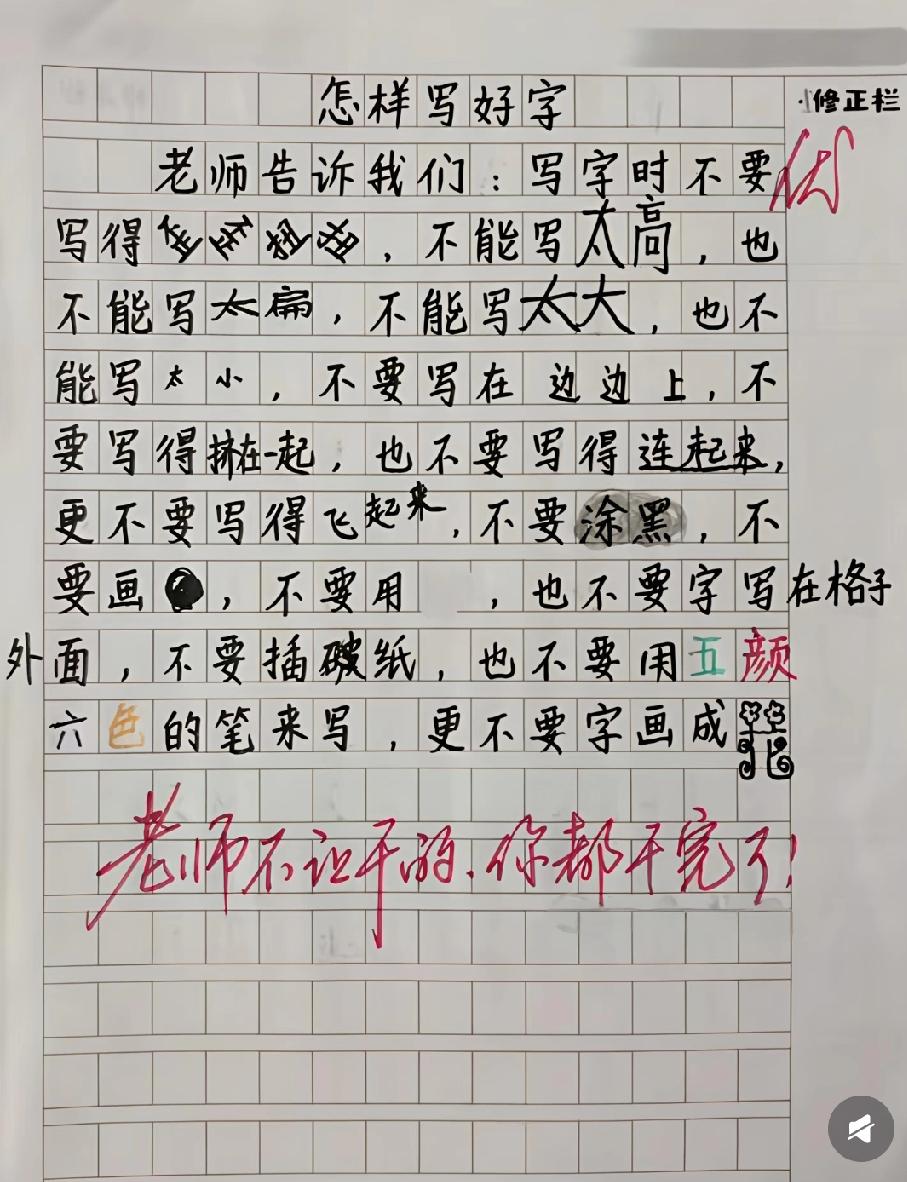 怎样写好字
修正栏
老师告诉我们：写字时不要
优
写得歪歪扭扭，不能写太高，也
不能写太扁，不能写太大，也不
能写太小，不要写在边边上，不
要写得挤在一起，也不要写得连起来，
更不要写得飞起来，不要涂黑，不
要画●，不要用，也不要字写在格子
外面，不要插破纸，也不要用五颜
六色的笔来写，更不要字画成花
老师不让干的.你都干完了!